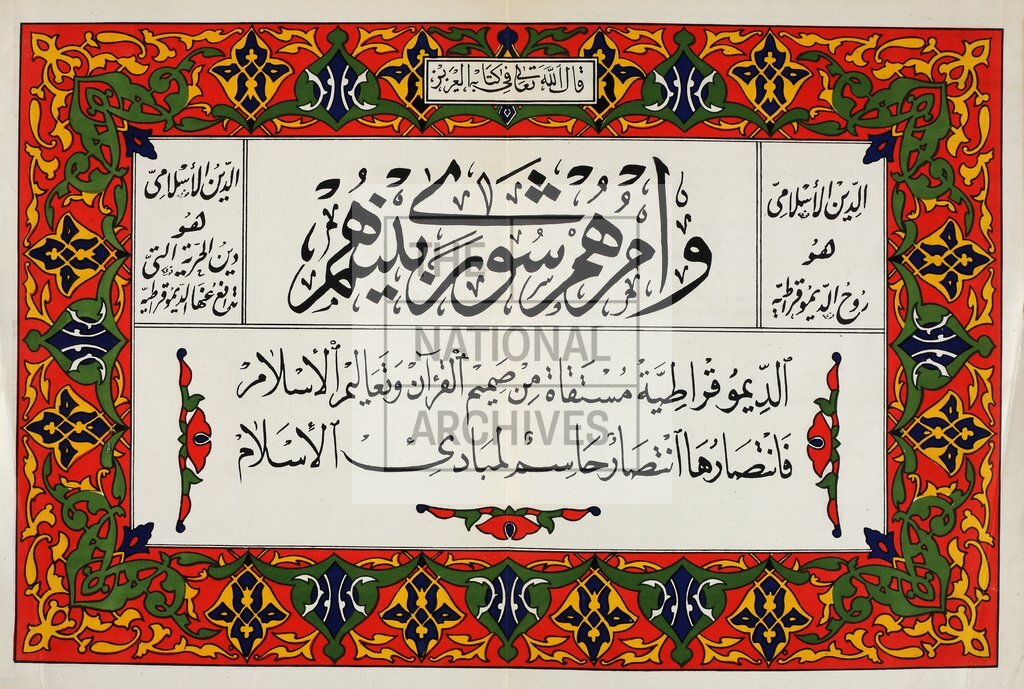 قال الله تعالى في كتابه العزيز
وأمرهم شورى بينهم
الدين الأسلامى
هو
روح الديموقراطية
الدين الأسلامى
هو
دين الحرية التى
تدفع عنها الديموقراطية
الديموقراطية مستقاة من صميم القرآن وتعاليم الأسلام
فانتصارها انتصار حاسم لمبادئ الأسلام
THE
NATIONAL
ARCHIVES